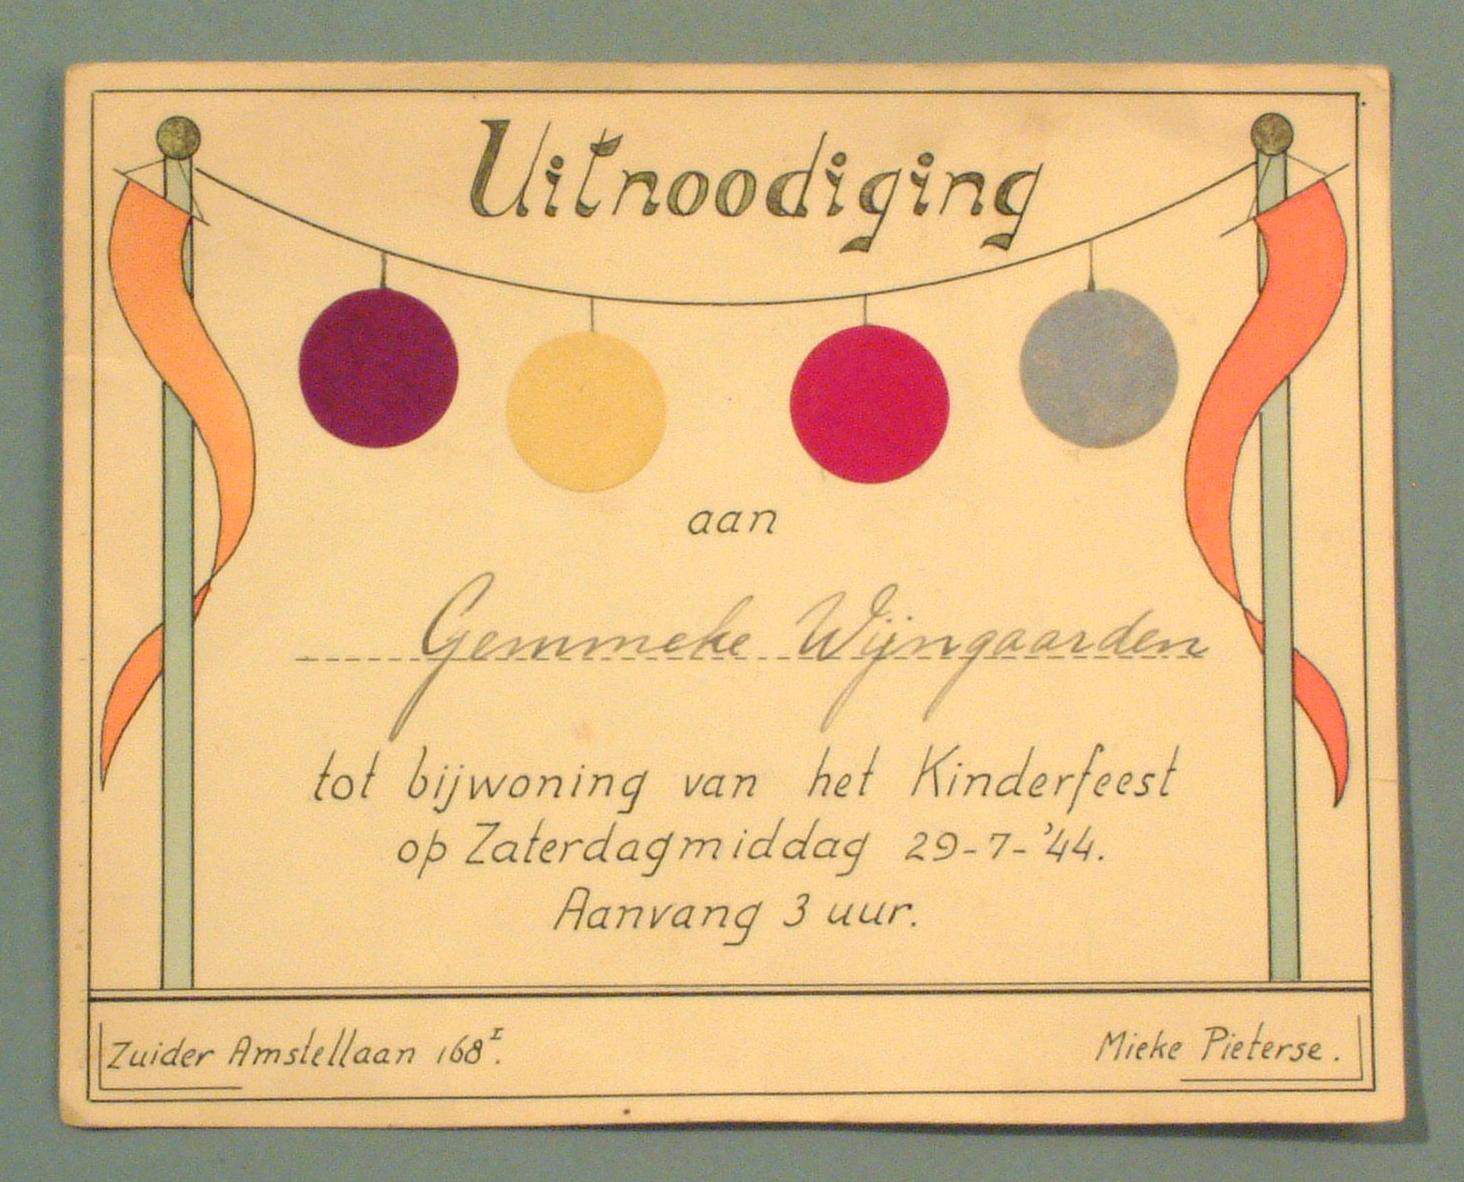 Uitnoodiging
aan
Gemmeke Wijngaarden
tot bijwoning van het Kinderfeest
op Zaterdagmiddag 29-7-'44.
Aanvang 3 uur.
Zuider Amstellaan 168I.
Mieke Pieterse.